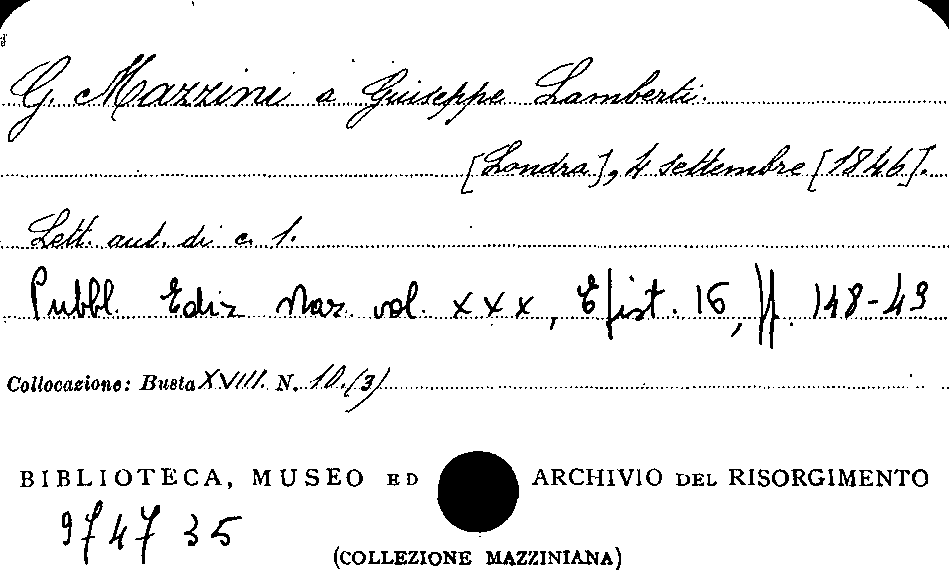 G. Mazzini a Giuseppe Lamberti.
[Londra], 4 settembre [1846].
Lett. aut. di c. 1.
Pubbl. Ediz Naz. vol. XXX, Epist. 16, pp. 148-49
Collocazione: Busta XVIII. N. 10.(3)
BIBLIOTECA, MUSEO ED ARCHIVIO DEL RISORGIMENTO
974735
(COLLEZIONE MAZZINIANA)